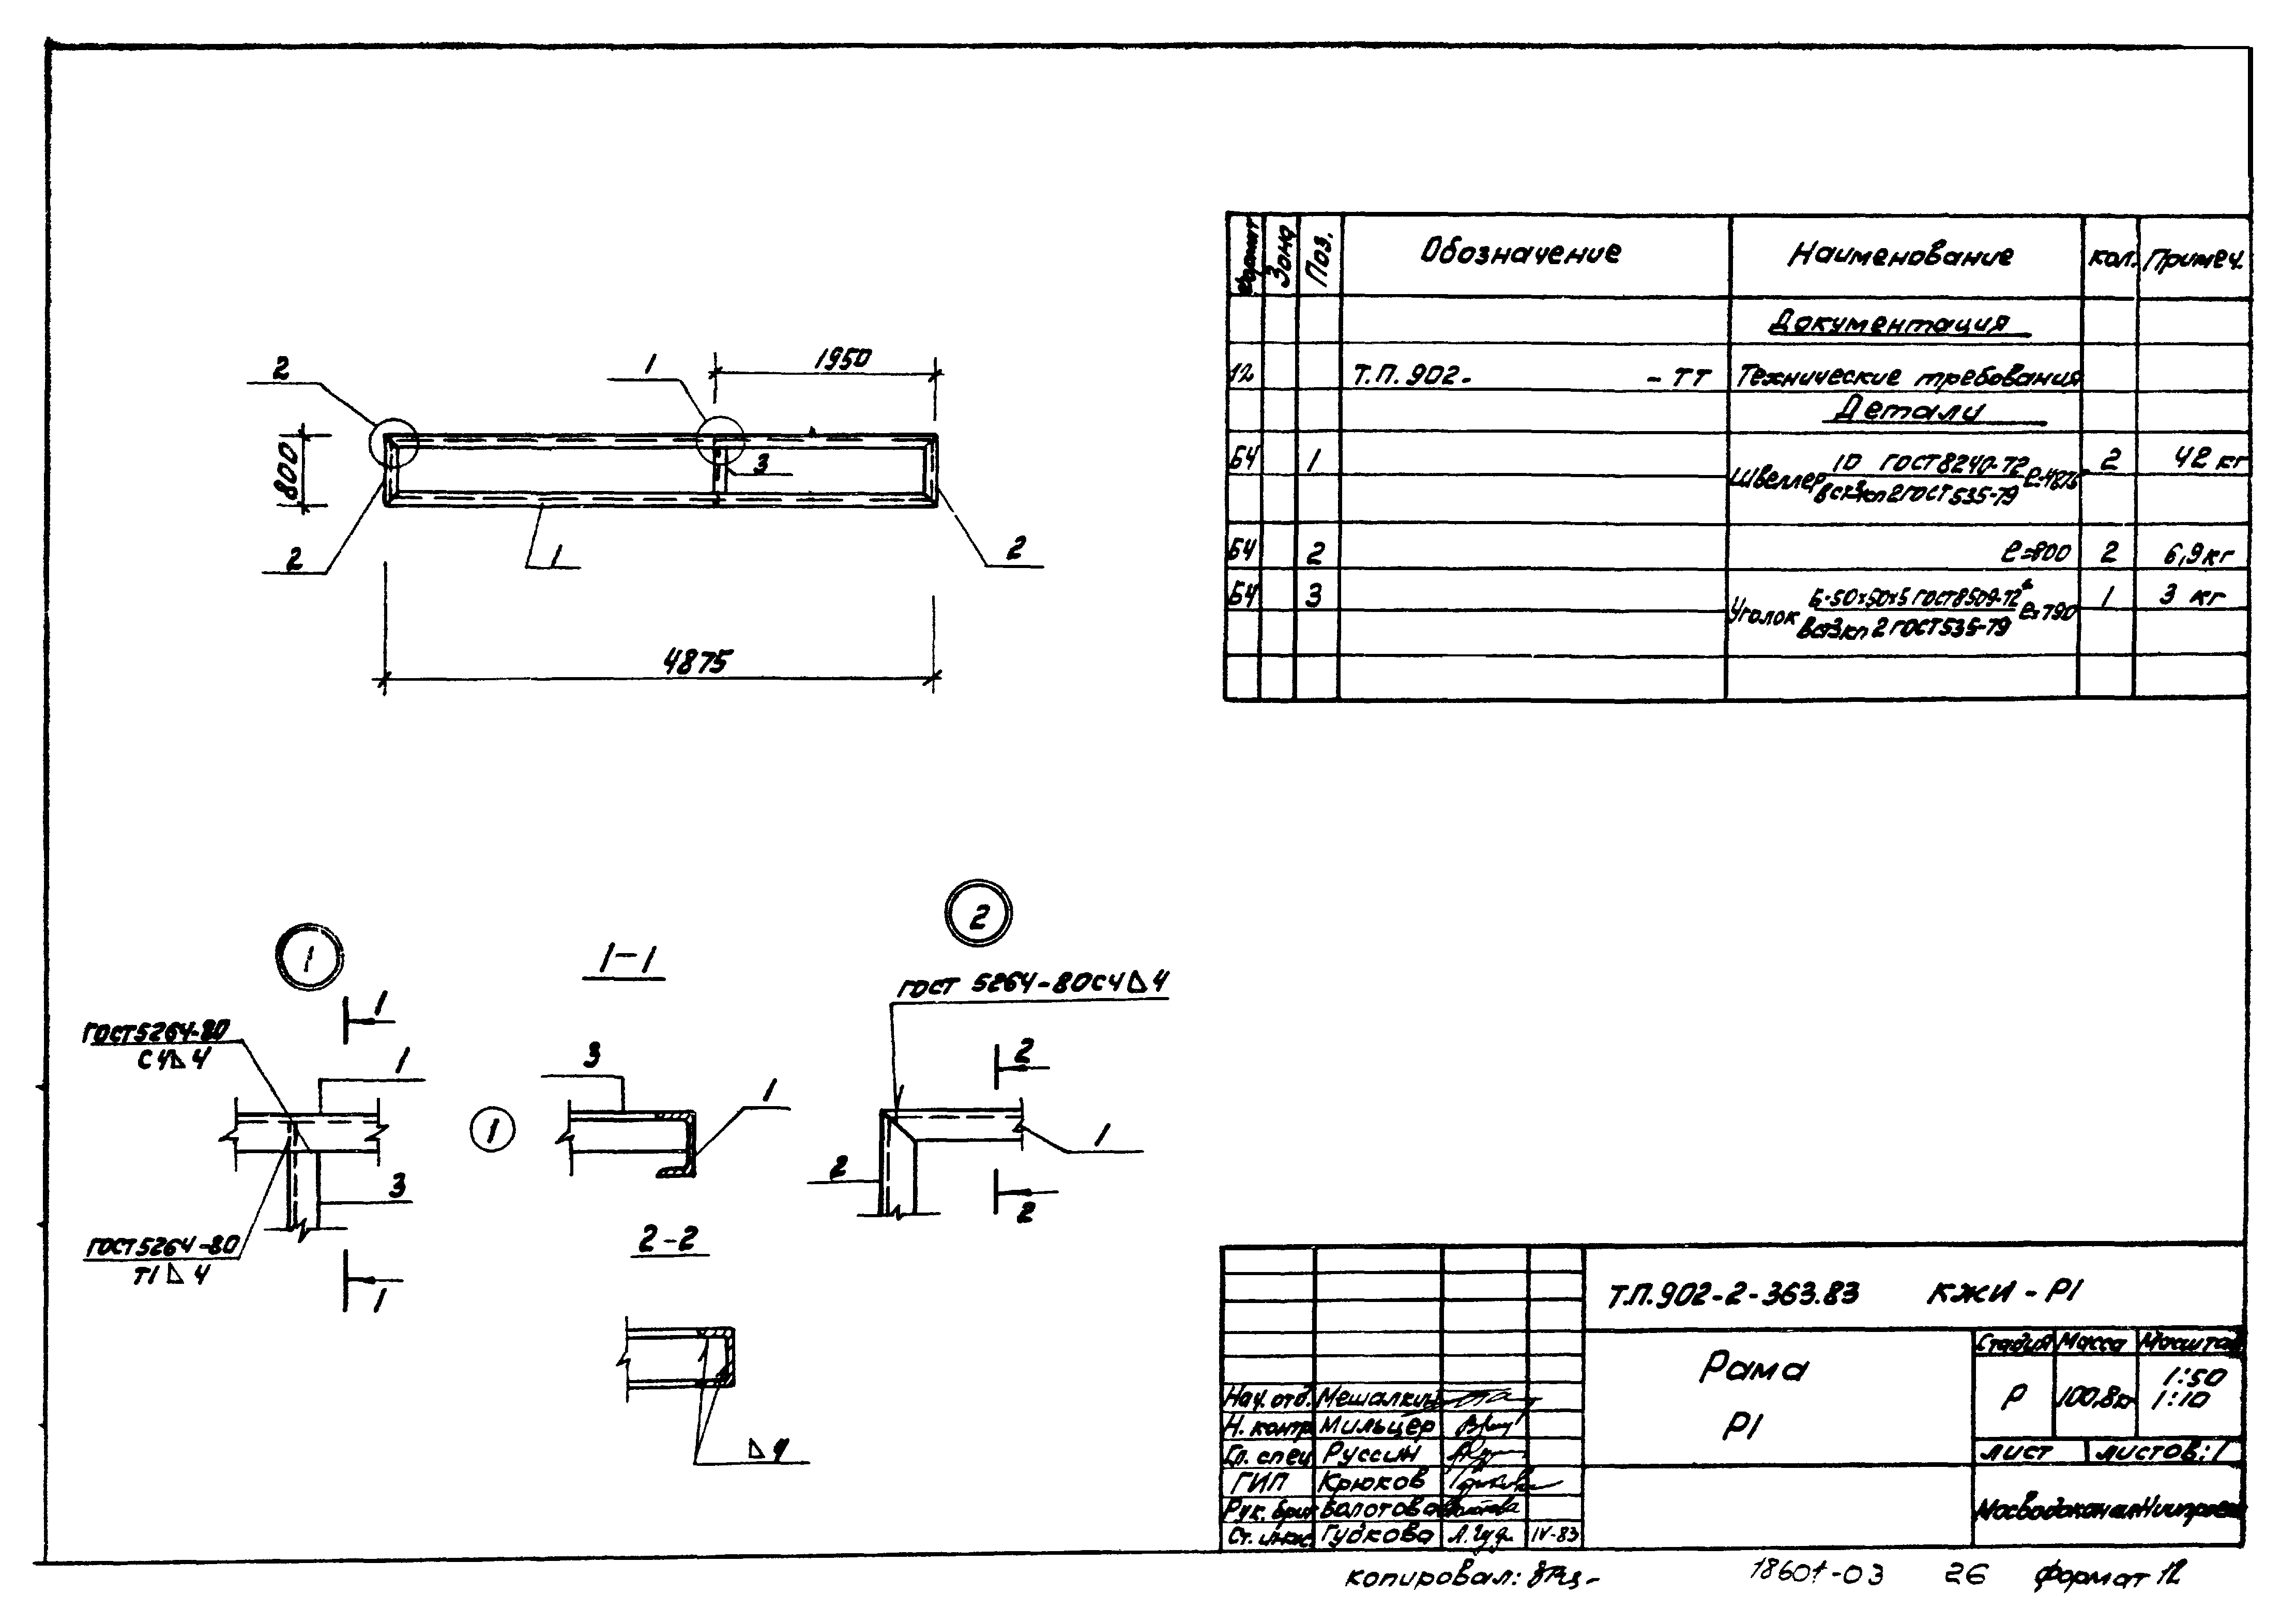 2
1
1950
800
3
2
1
2
4875
Формат Зона Поз. Обозначение Наименование Кол. Примеч.
Документация
12 Т.П. 902- -ТТ Технические требования
Детали
Б4 1 Швеллер 10 ГОСТ 8240-72 ℓ=4875 2 42 кг
Вст3кп2 ГОСТ 535-79
Б4 2 ℓ=800 2 6,9 кг
Б4 3 Уголок Б-50×50×5 ГОСТ 8509-72* ℓ=790 1 3 кг
Вст3кп2 ГОСТ 535-79
1
1-1
2
1
ГОСТ 5264-80
С4 ◺ 4
1
3
ГОСТ 5264-80
Т1 ◺ 4
1
1
3
1
ГОСТ 5264-80 С4 ◺ 4
2
1
2
2
2-2
◺ 4
Т.П. 902-2-363.83 КЖИ - Р1
Рама
Р1
Стадия Масса Масштаб
Р 100,8кг 1:50
1:10
Лист Листов: 1
МосводоканалНиипроект
Нач. отд. Мешалкин
Н. контр Мильцер
Гл. спец Руссин
ГИП Крюков
Рук. бриг Болотова
Ст. инж Гудкова IV-83
Копировал: 18601-03 26 Формат 12